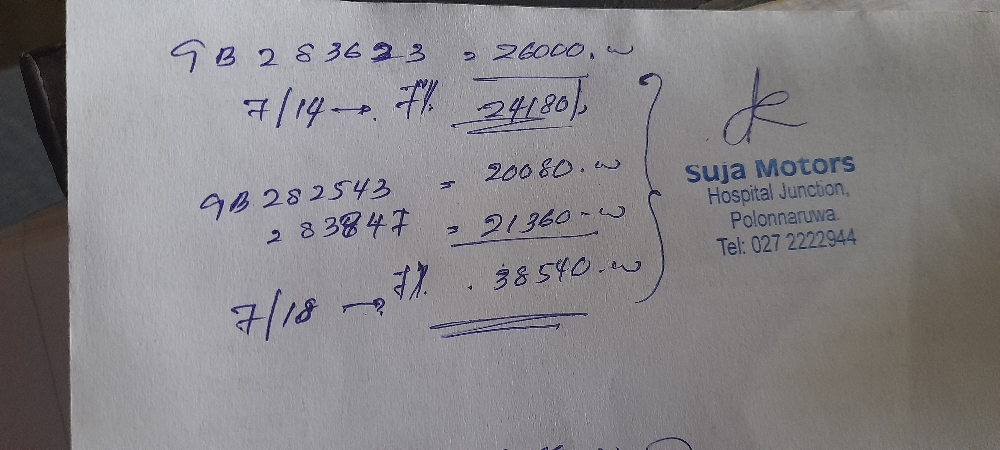 GB 283623 = 26000.00
7/14 → 7% 24180/-
GB 282543 = 20080.00
283847 = 21360-00
7/18 → 7% 38540.00
Suja Motors
Hospital Junction,
Polonnaruwa.
Tel: 027 2222944